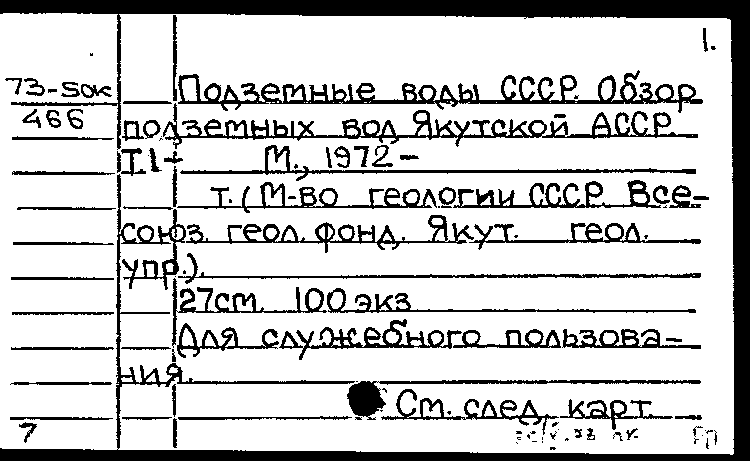 1.
73-5ок Подземные воды СССР. Обзор
466 подземных вод Якутской АССР.
Т.1- М., 1972-
т. (М-во геологии СССР. Все-
союз. геол. фонд. Якут. геол.
упр.).
27см. 100 экз
Для служебного пользова-
ния.
См. след. карт.
7